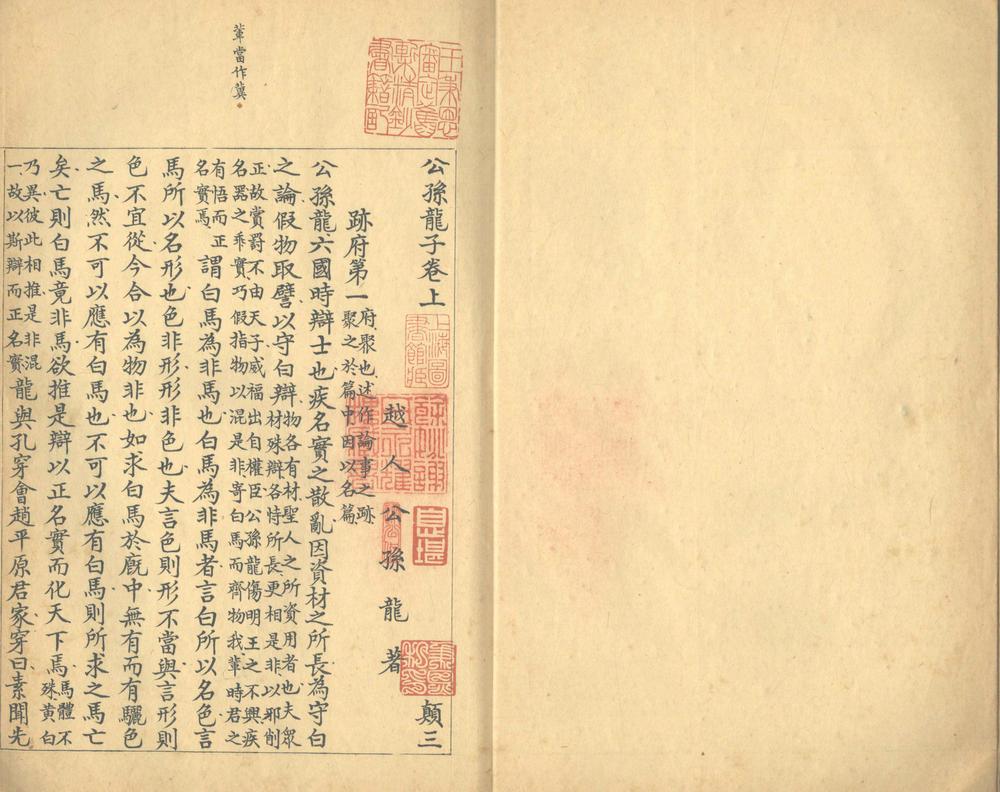 輂當作冀
公孫龍子卷上
顛三
越人公孫龍著
跡府第一
府聚也述作論事之跡
聚之於篇中因以名篇
公孫龍六國時辯士也疾名實之散亂因資材之所長為守白
之論假物取譬以守白辯
物各有材聖人之所資用者也夫眾
材殊辯各恃所長更相是非以邪削
正故賞罰不由天子威福出自權臣公孫龍傷明王之不興疾
名器之乖實乃假指物以混是非寄白馬而齊物我輂時君之
有悟而正
名實焉
謂白馬為非馬也白馬為非馬者言白所以名色言
馬所以名形也色非形形非色也夫言色則形不當與言形則
色不宜從今合以為物非也如求白馬於廐中無有而有驪色
之馬然不可以應有白馬也不可以應有白馬則所求之馬亡
矣亡則白馬竟非馬欲推是辯以正名實而化天下焉
馬體不
殊黄白
乃異彼此相推是非混
一故以斯辯而正名實
龍與孔穿會趙平原君家穿曰素聞先
上海圖
書館藏